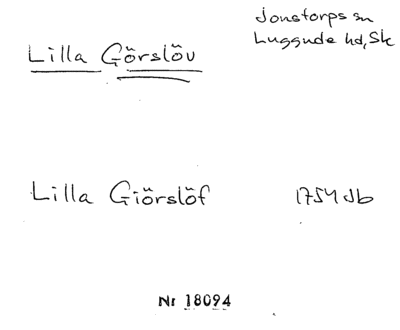 Jonstorps sn
Luggude hd, Sk
Lilla Görslöv
Lilla Giörslöf 1754 Jb
Nr 18094